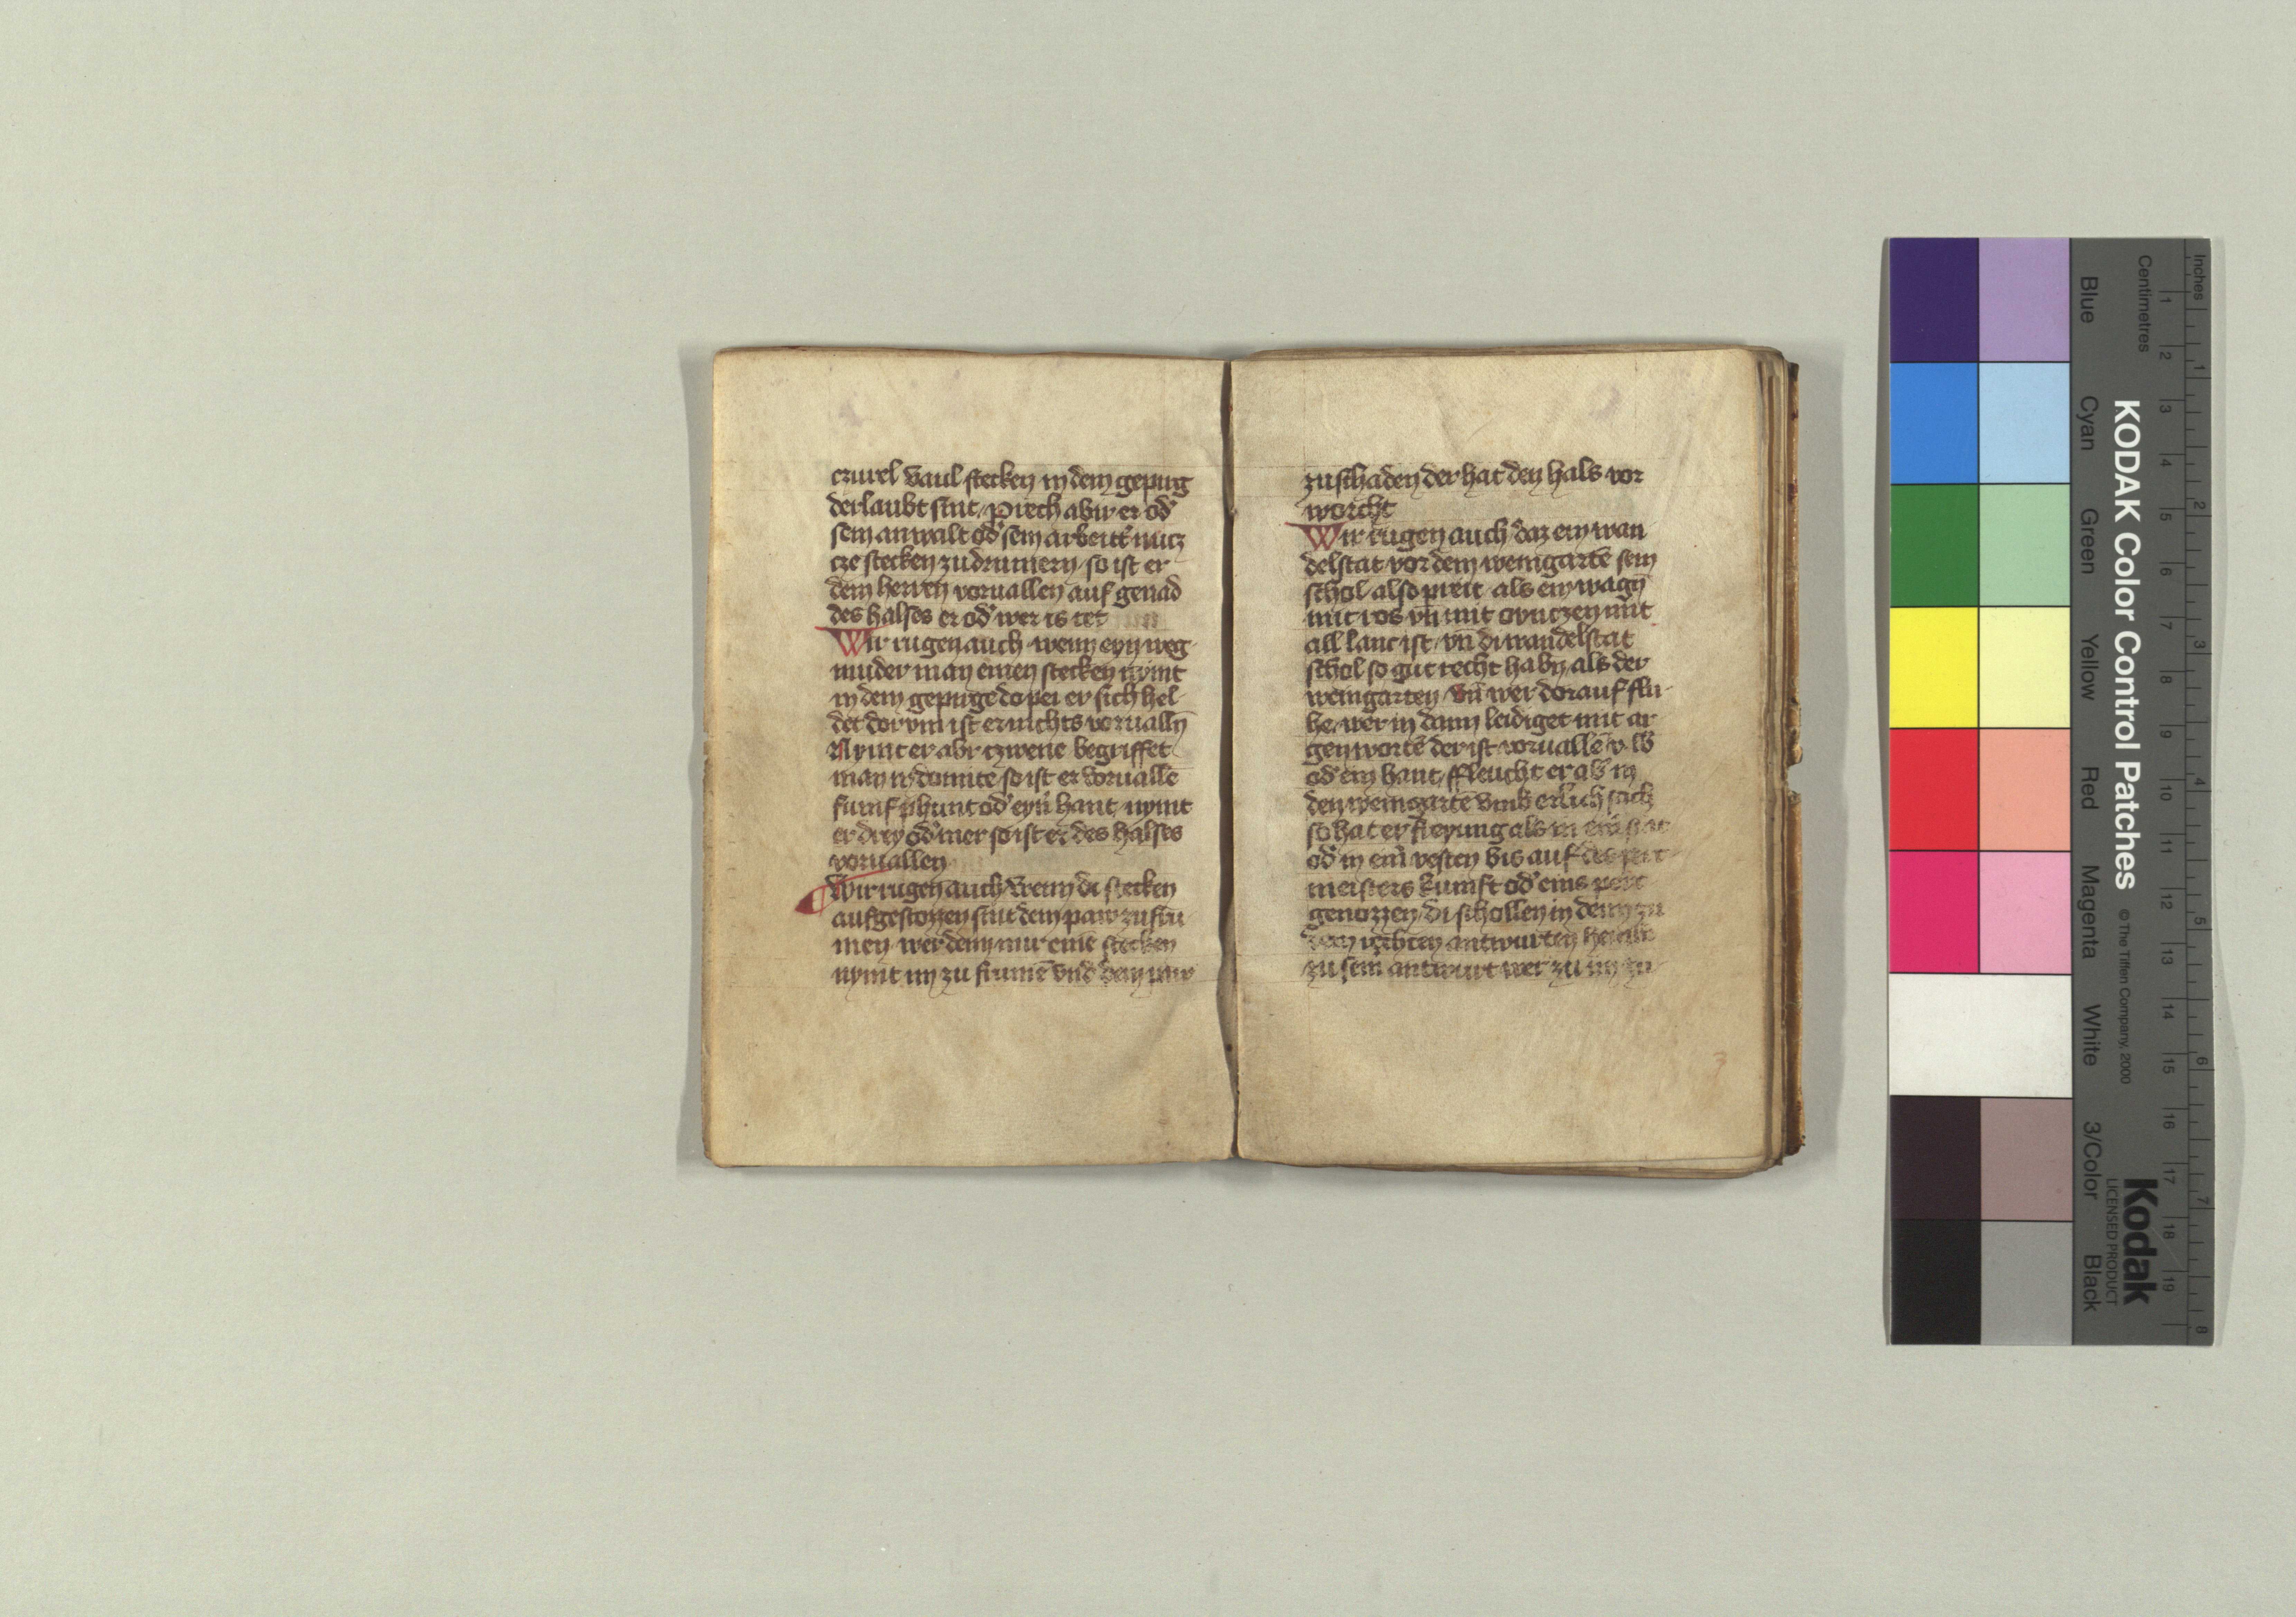 czwel vaul stecken in dem gepirg
derlaubt sint, Prech abir er od'
sein anwalt od' sein arbeitt' nucz
cze stecken zu drumern, so ist er
dem herren voruallen auf genad
des halses er od' wer is tet
Wir rugen auch wenn eyn weg
muder man einen stecken nymt
in dem gepirge do pei er sich hel
det dorvm ist er nichts voruallen
Nymt er abir czwene begriffet
man in domite so ist er voruallē
fumf phunt od' eyn hant, nymt
er drey od' mer so ist er des halses
voruallen
Wir rugen auch wenn di stecken
aufgestozzen sint dem paw zu fru
men, wer denn nur einē stecken
nymt im zu frumē vnd dem paw
zu schaden der hat den hals vor
worcht
Wir rugen auch daz ein wan
delstat vor dem weingartē sein
schol also preit als ein wagn
mit ros vn̄ mit
all lanc ist, vn̄ di wandelstat
schol so gut recht habn als der
weingarten, vn̄ wer dorauf flu
he, wer in dann leidiget mit ar
gen wortē der ist voruallē v lb
od' ein hant, ffleucht er ab in
den weingartē vmb erlich sach
so hat er freyung als in
od' in ein vesten bis auf des perc
meisters kumft od' eins perc
genozzen, di schollen in denn zu
antwurten
zu sein antwurt wer zu im zu
3
KODAK Color Control Patches
© The Tiffen Company, 2000
Kodak
LICENSED PRODUCT
Blue Cyan Green Yellow Red Magenta White 3/Color Black
Centimetres
1 2 3 4 5 6 7 8 9 10 11 12 13 14 15 16 17 18 19
Inches
1 2 3 4 5 6 7 8